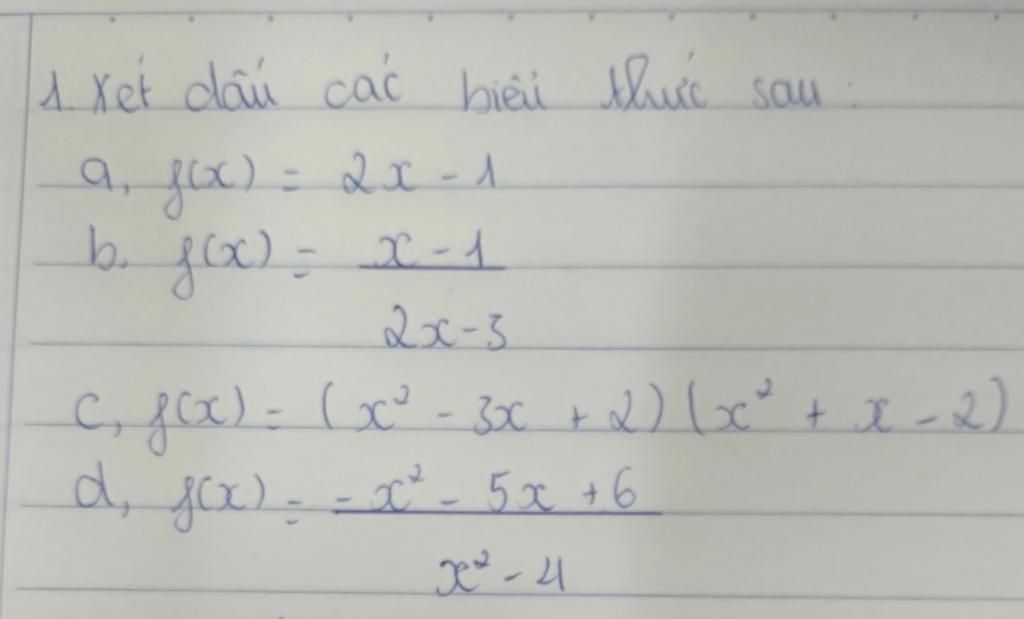 1. Xét dấu các biểu thức sau:
a, f(x) = 2x - 1
b. f(x) = x - 1
2x - 3
c, f(x) = (x² - 3x + 2)(x² + x - 2)
d, f(x) = -x² - 5x + 6
x² - 4